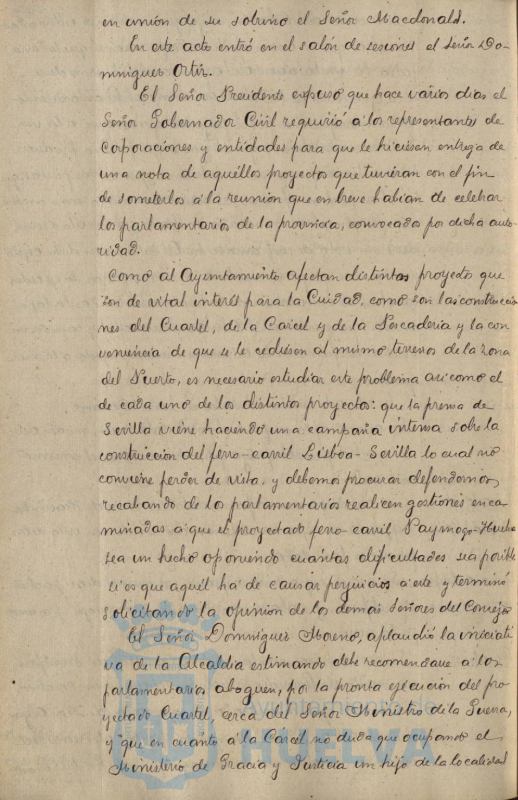 en unión de su sobrino el Señor Macdonald.
En este acto entró en el salón de sesiones el Señor Do-
minguez Ortiz.
El Señor Presidente expuso que hace varios dias el
Señor Gobernador Civil requirió a los representantes de
Corporaciones y entidades para que le hiciesen entrega de
una nota de aquéllos proyectos que tuvieran con el fin
de someterlos a la reunión que en breve habian de celebrar
los parlamentarios de la provincia, convocados por dicha auto-
ridad.
Como al Ayuntamiento afectan distintos proyecto que
son de vital interés para la Cuidad, como son las construccio-
nes del Cuartel, de la Carcel y de la Pescaderia y la con
veniencia de que se le cediesen al mismo terrenos de la zona
del Puerto, es necesario estudiar este problema asi como el
de cada uno de los distintos proyectos: que la prensa de
Sevilla viene haciendo una campaña intensa sobre la
construcción del ferro-carril Lisboa-Sevilla lo cual no
conviene perder de vista, y debemos procurar defendernos,
recabando de los parlamentarios realicen gestiones enca
minadas a que el proyectado ferro-carril Paymogo-Huelva
sea un hecho oponiendo cuántas dificultades sea posible
si es que aquél ha de causar perjuicios a este y terminó
solicitando la opinión de los demás Señores del Concejo.
El Señor Dominguez Moreno, aplaudió la iniciati
va de la Alcaldia estimando debe recomendarse a los
parlamentarios aboguen, por la pronta ejecución del pro
yectado Cuartel, cerca del Señor Ministro de la Guerra,
y que en cuánto a la Carcel no duda que ocupando el
Ministerio de Gracia y Justicia un hijo de la localidad
Ayuntamiento de
HUELVA